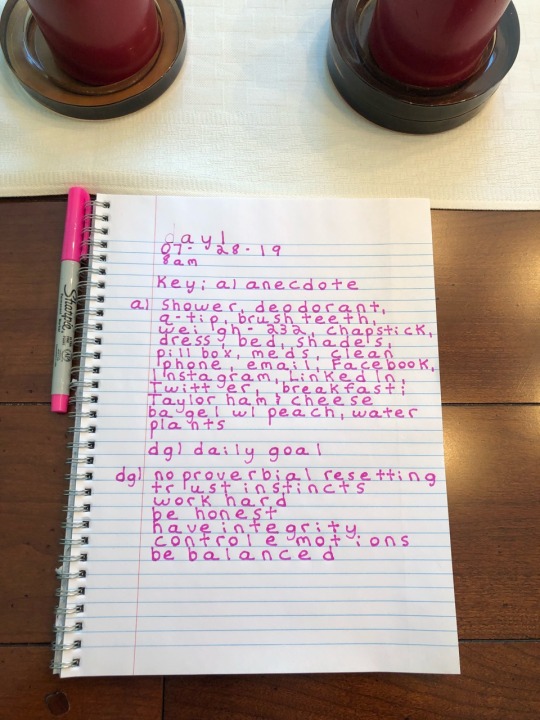 day 1
07-28-19
8am
Key; a) anecdote
a) Shower, deodorant,
q-tip, brush teeth,
weigh-232, chapstick,
dress, bed, shades,
pill box, meds, clean
iphone, email, Facebook,
Instagram, LinkedIn,
Twitter, breakfast;
Taylor ham & cheese
bagel w/ peach, water
plants
dg) daily goal
dg) no proverbial resetting
trust instincts
work hard
be honest
have integrity
control emotions
be balanced
Sharpie